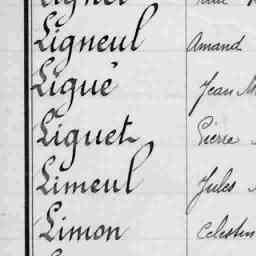 Ligneul Amand
Ligué Jean
Liguet Pierre
Limeul Jules
Limon Celestin